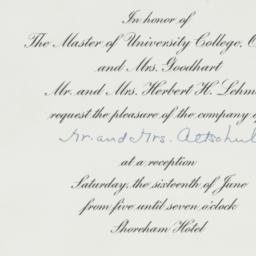 In honor of
The Master of University College, O
and Mrs. Goodhart
Mr. and Mrs. Herbert H. Lehm
request the pleasure of the company o
Mr. and Mrs. Altschul
at a reception
Saturday, the sixteenth of June
from five until seven o'clock
Shoreham Hotel